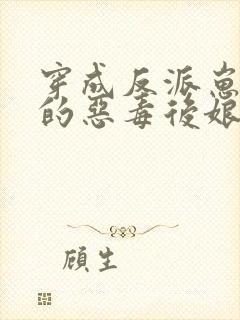 穿成反派崽
的惡毒後娘
顧生